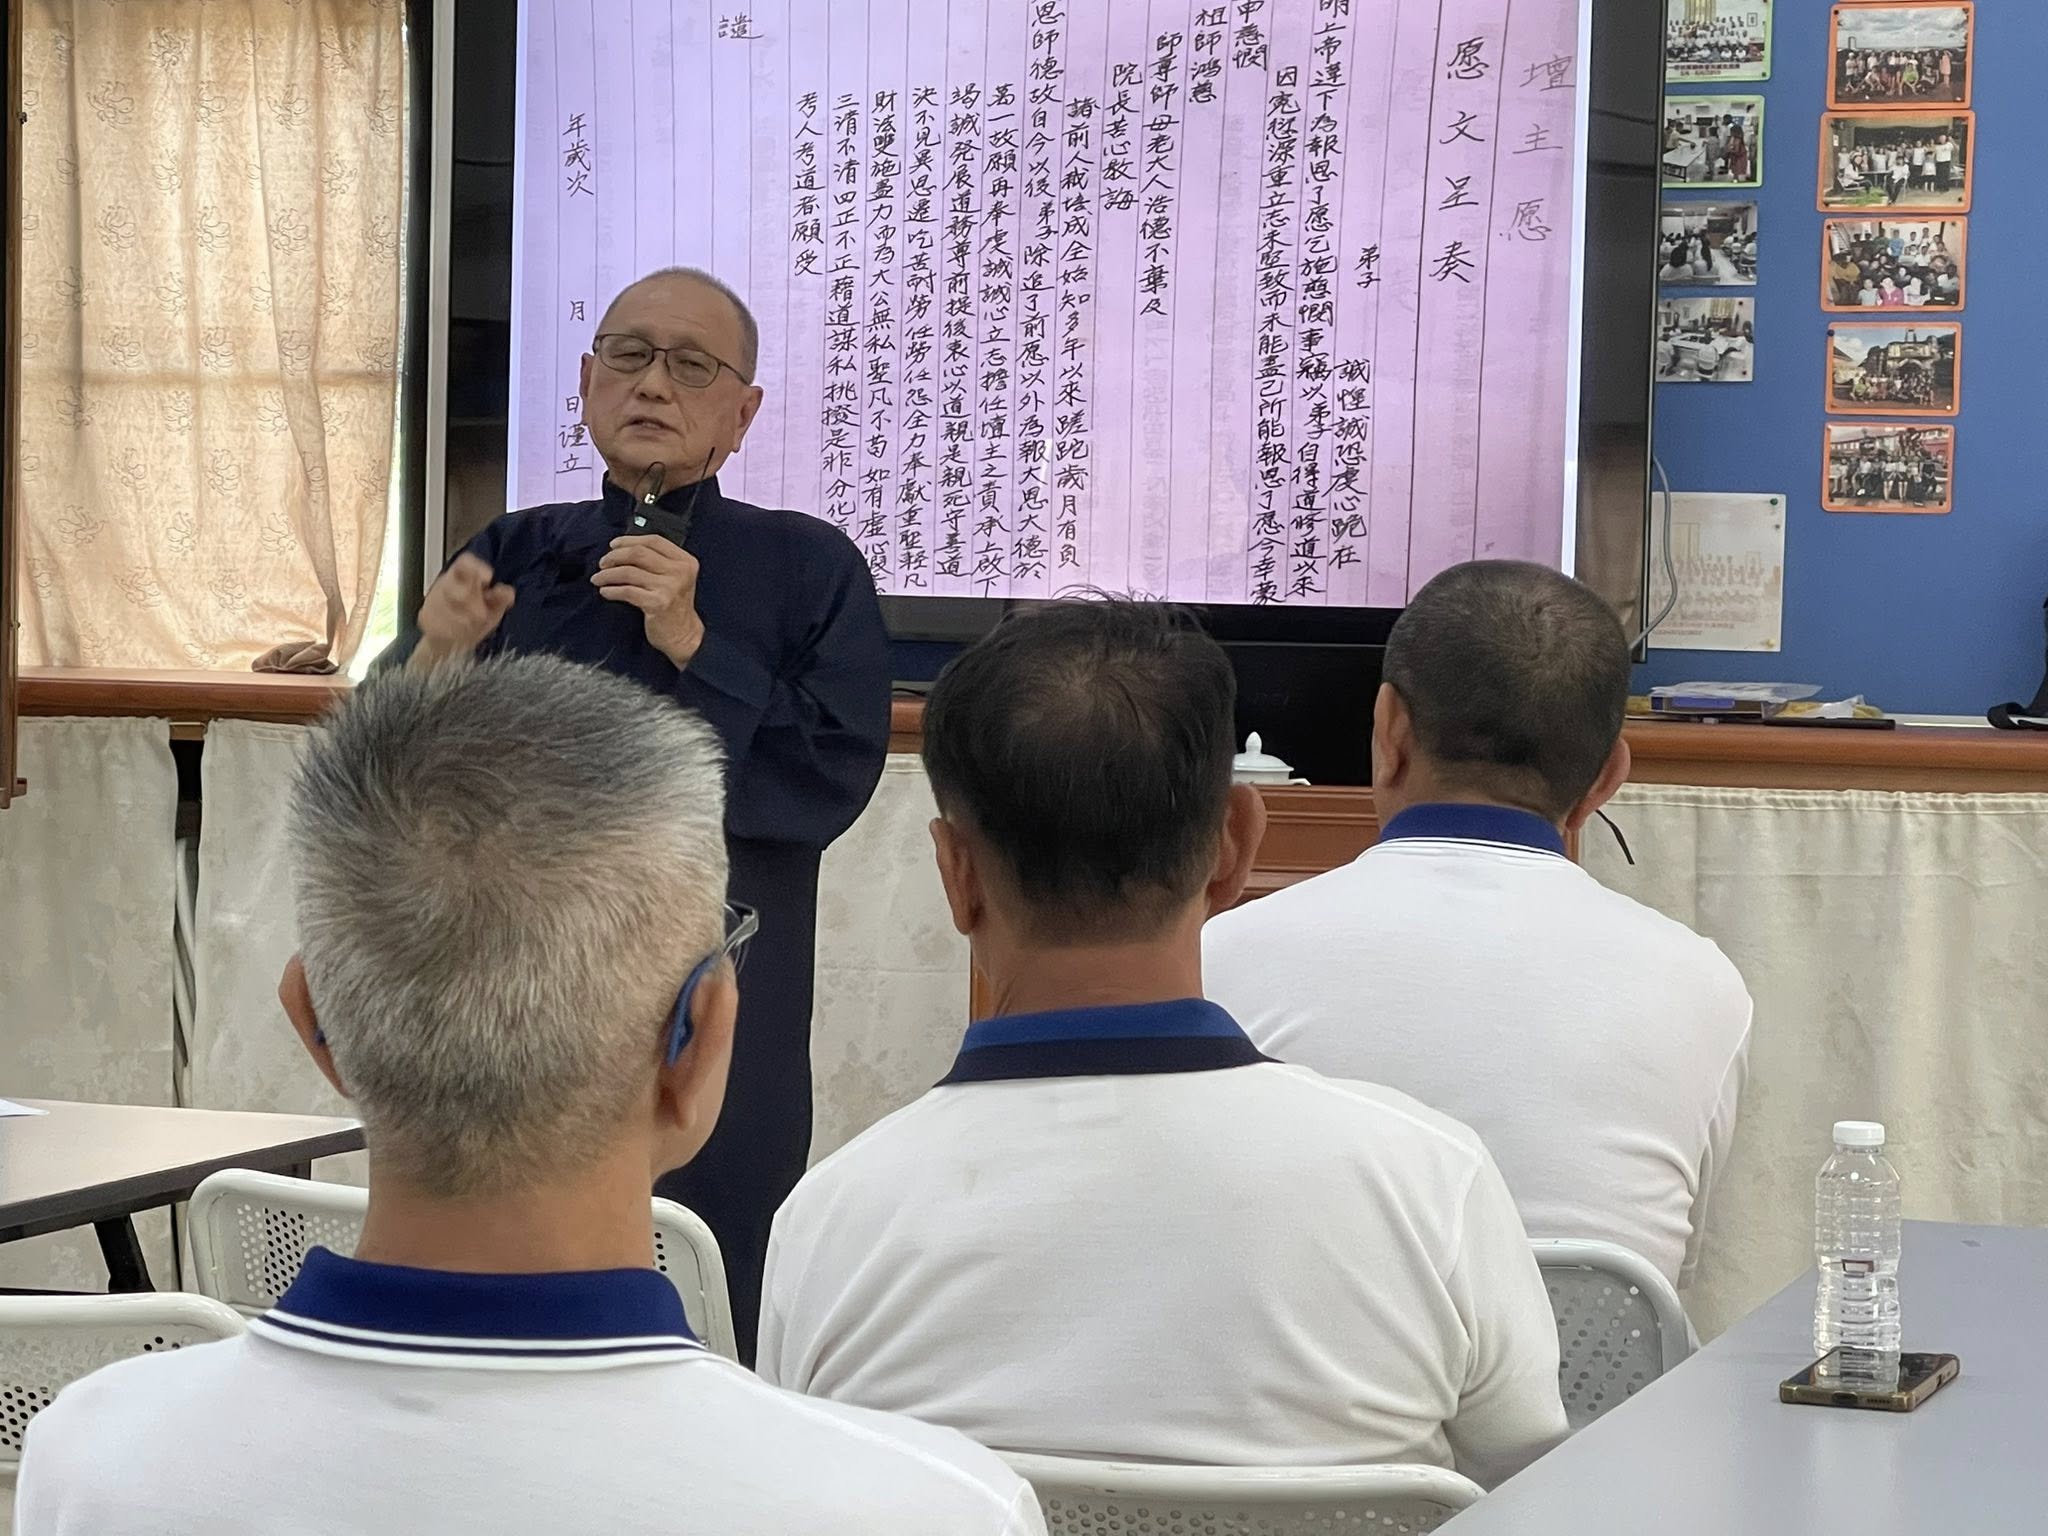 壇主愿
愿文呈奏
弟子 誠惶誠恐虔心跪在
明上帝蓮下為報恩了愿乞施慈憫事竊以弟子自得道修道以來
因冤愆深重立志未堅致而未能盡己所能報恩了愿今幸蒙
申慈憫
祖師鴻慈
師尊師母老大人浩德不棄及
院長苦心教誨
諸前人栽培成全始知多年以來蹉跎歲月有負
恩師德故自今以後弟子除追了前愿以外為報大恩大德於
萬一故願再奉虔誠誠心立志擔任壇主之責承上啟下
竭誠發展道務尊前提後衷心以道親是親死守善道
決不見異思遷吃苦耐勞任勞任怨全力奉獻重聖輕凡
財法雙施盡力而為大公無私聖凡不苟如有虛心假
三清不清四正不正藉道謀私挑撥是非分化
考人考道者願受
譴
年歲次 月 日謹立